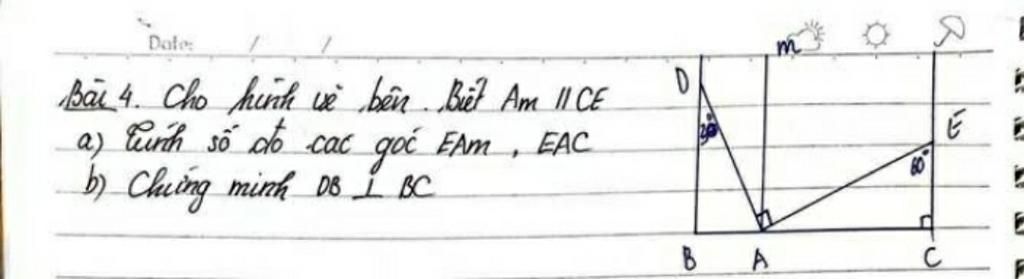 Date: / /
Bài 4. Cho hình vẽ bên. Biết Am // CE
a) Tính số đo các góc EAm, EAC
b) Chứng minh DB ⊥ BC
m
D
30°
E
60°
B A C